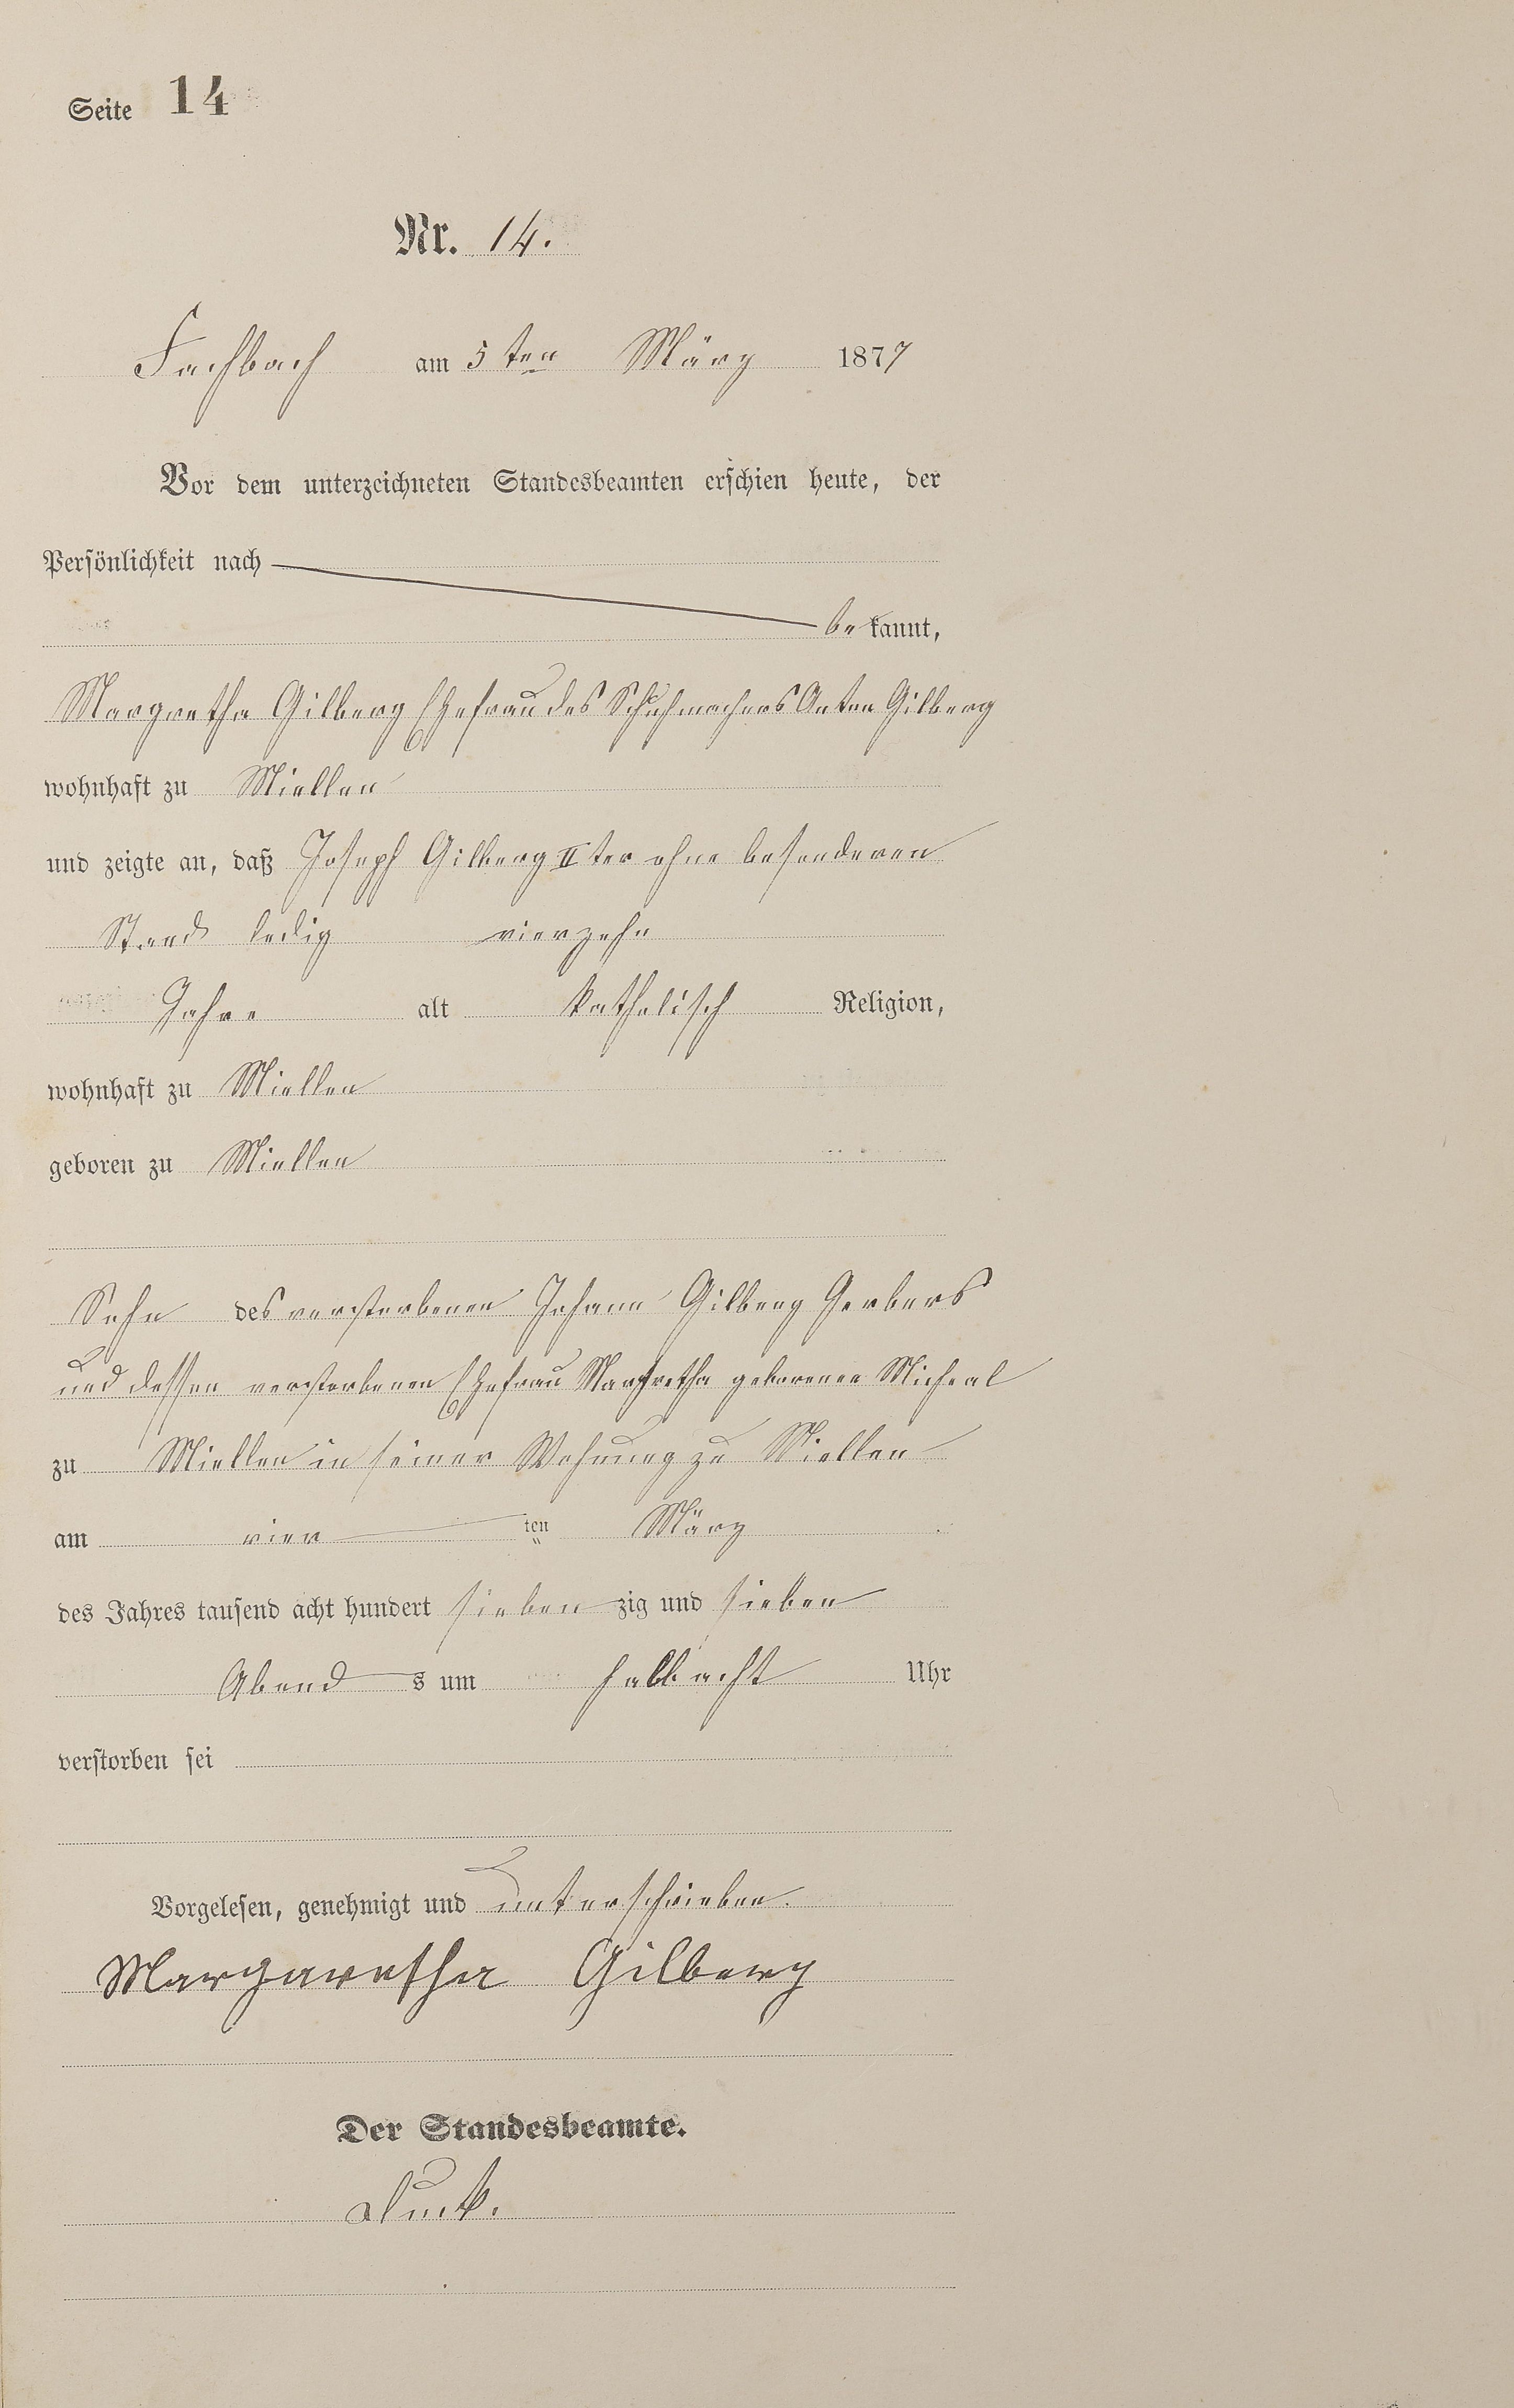 Seite 14
Nr. 14.
Fachbach am 5 ten März 1877
Vor dem unterzeichneten Standesbeamten erschien heute, der
Persönlichkeit nach
be kannt,
Margretha Gilberg Ehefrau des Schuhmachers Anton Gilberg
wohnhaft zu Miellen
und zeigte an, daß Joseph Gilberg II ter ohne besonderen
Stand ledig vierzehn
Jahre alt katholisch Religion,
wohnhaft zu Miellen
geboren zu Miellen
Sohn des verstorbenen Johann Gilberg Gerbers
und dessen verstorbenen Ehefrau Margretha geborenen
zu Miellen in seiner Wohnung zu Miellen
am vier ten März
des Jahres tausend acht hundert sieben zig und sieben
Abend s um halb acht Uhr
verstorben sei
Vorgelesen, genehmigt und unterschrieben.
Margaretha Gilberg
Der Standesbeamte.